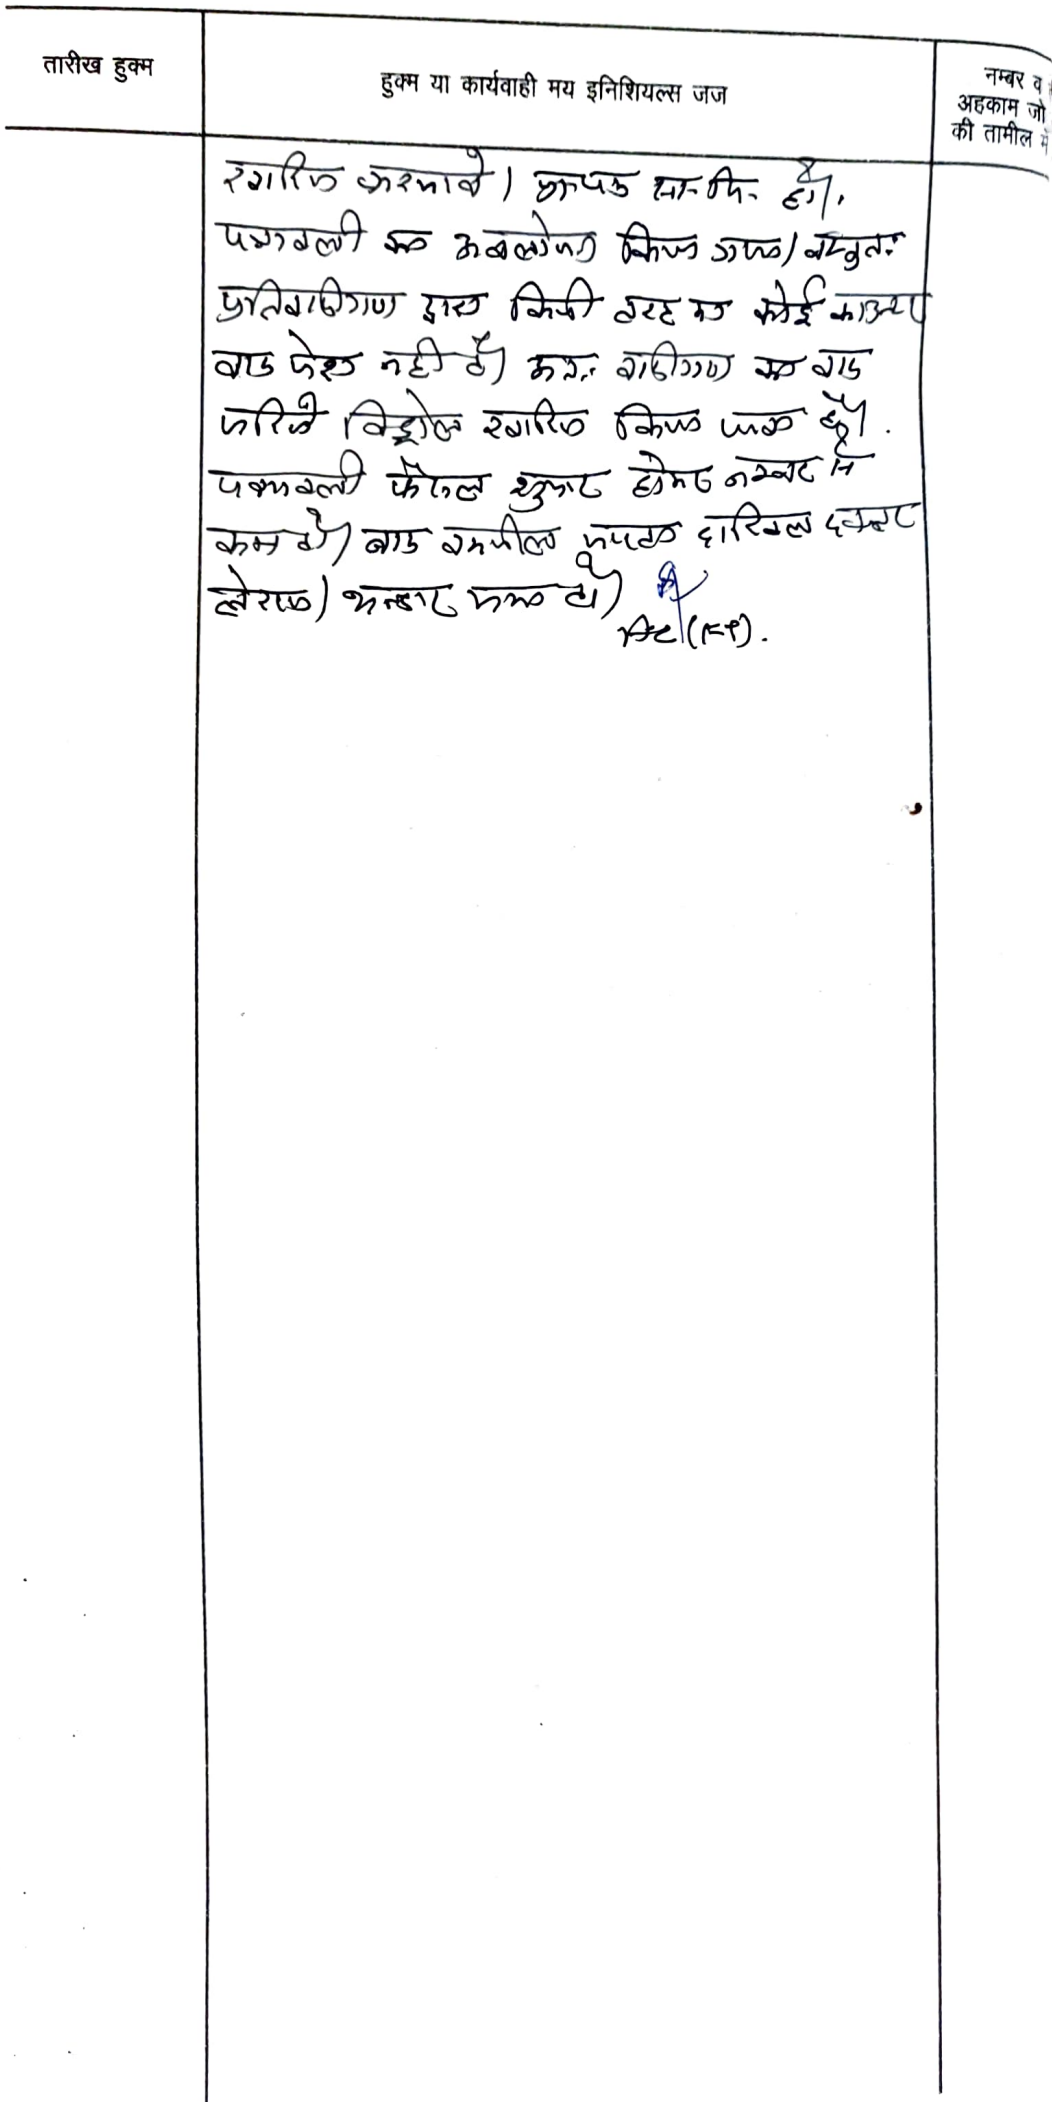 तारीख हुक्म
हुक्म या कार्यवाही मय इनिशियल्स जज
नम्बर व
अहकाम जो
की तामील में
खारिज फरमावे। शा.मि. हो।
पत्रावली का अवलोकन किया गया। वस्तुतः
प्रतिवादीगण द्वारा किसी तरह का कोई काउन्टर
वाद पेश नहीं है। अतः वादीगण का वाद
जरिये विड्रोल खारिज किया जाता है।
पत्रावली फैसल शुमार होकर नम्बर से
कम हो। बाद तकमील दाखिल दफ्तर
हो।